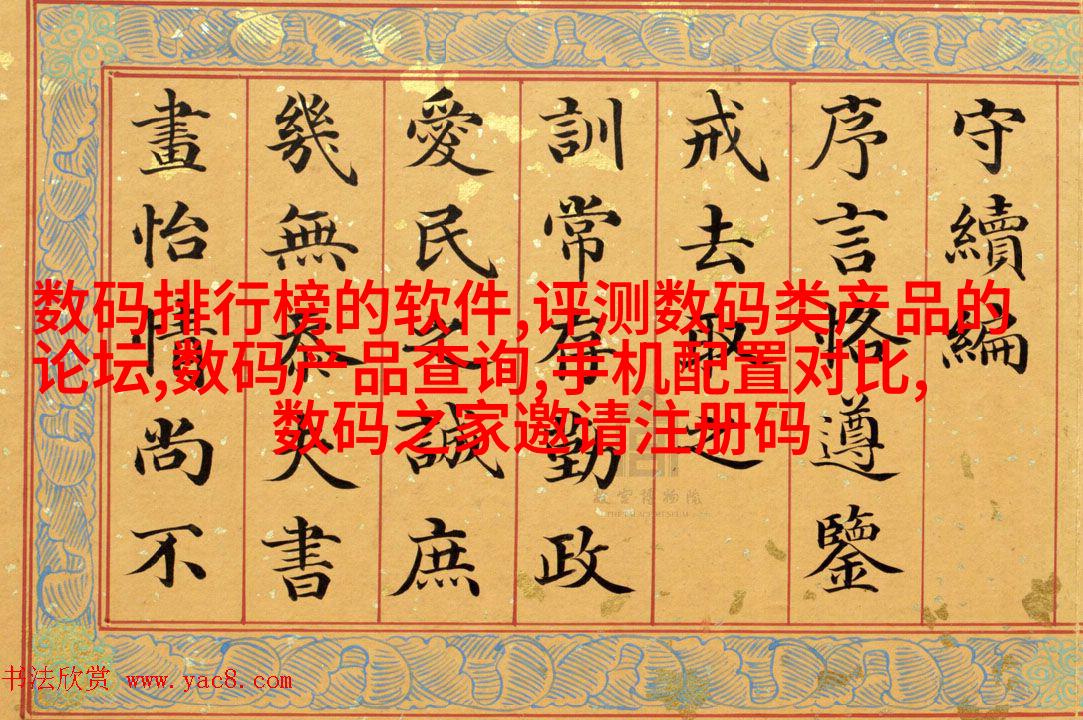 守續編
序言恪遵鑒
戒去取之
訓常勤政
愛民之誠庶
幾無忝夫書
畫怡情尚不
数码排行榜的软件,评测数码类产品的
论坛,数码产品查询,手机配置对比,
数码之家邀请注册码
故宫博物院
THE PALACE MUSEUM
书法欣赏 www.yac8.com